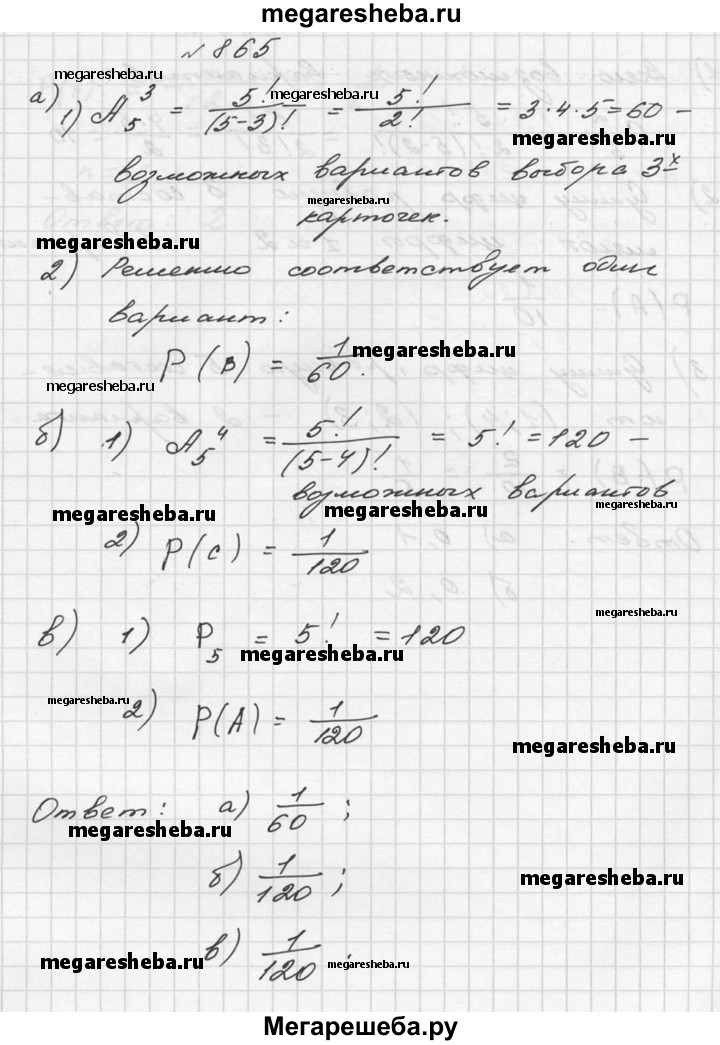 megaresheba.ru
№ 865
megaresheba.ru
megaresheba.ru
а) 1) A₅³ = 5!/(5-3)! = 5!/2! = 3·4·5=60 –
megaresheba.ru
возможных вариантов выбора 3х
megaresheba.ru
карточек.
megaresheba.ru
2) Решению соответствует один
вариант:
P(B) = 1/60.
megaresheba.ru
megaresheba.ru
б) 1) A₅⁴ = 5!/(5-4)! = 5! = 120 –
возможных вариантов
megaresheba.ru megaresheba.ru megaresheba.ru
2) P(C) = 1/120
megaresheba.ru
в) 1) P₅ = 5! = 120
megaresheba.ru
megaresheba.ru
2) P(A) = 1/120
megaresheba.ru
Ответ: а) 1/60;
megaresheba.ru
б) 1/120;
megaresheba.ru
в) 1/120.
megaresheba.ru megaresheba.ru
Мегарешеба.ру